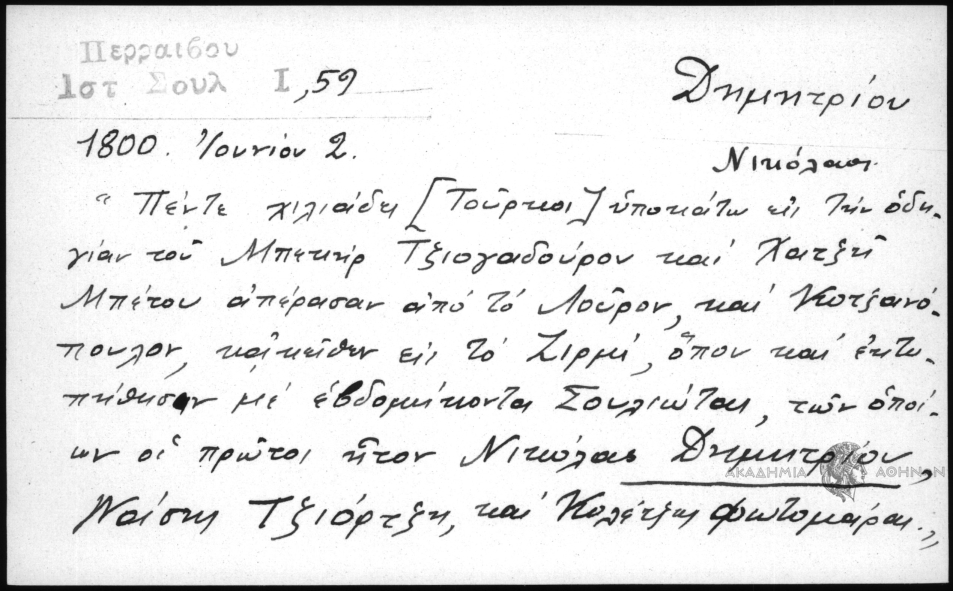 Περραιβου
Ιστ Σουλ Ι, 59
Δημητρίου
1800. Ἰουνίου 2.
Νικόλαος
" Πέντε χιλιάδες [Τοῦρκοι] ὑποκάτω εἰς τήν ὁδη-
γίαν τοῦ Μπεκήρ Τζιογαδούρου καί Χατζῆ
Μπέτου ἀπέρασαν ἀπό τό Λοῦρον, καί Κοτζανό-
πουλον, κἀκεῖθεν εἰς τό Ζερμί, ὅπου καί ἐκτυ-
πήθησαν μέ ἑβδομήκοντα Σουλιώτας, τῶν ὁποί-
ων οἱ πρῶτοι ἦτον Νικόλαος Δημητρίου,
ΑΚΑΔΗΜΙΑ ΑΘΗΝΩΝ
Νάσης Τζιόρτζης, καί Κολέτζης Φωτομάρας.„